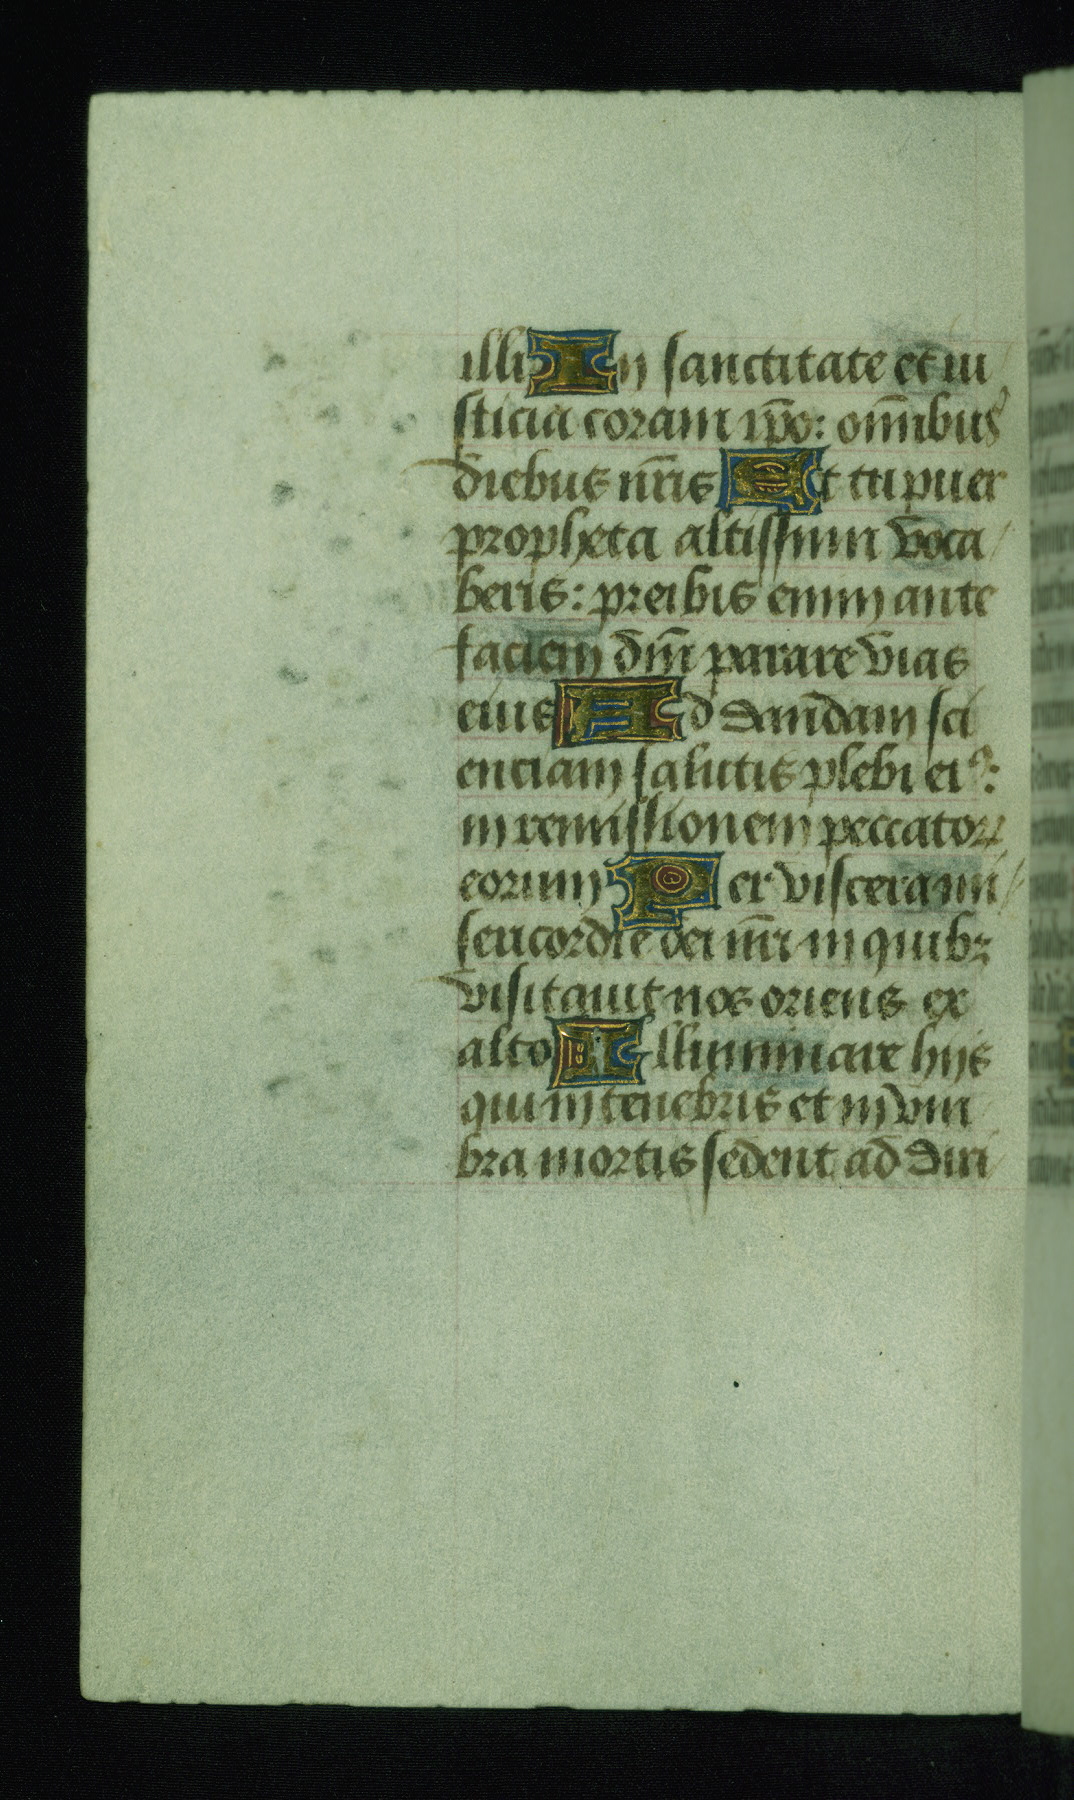 illi In sanctitate et iu
sticia coram ip̄o: om̄ibus
diebus nr̄is Et tu puer
propheta altissimi voca/
beris: preibis enim ante
faciem dn̄i parare vias
eius Ad dandam sci
entiam salutis plebi eiꝰ:
in remissionem peccatoꝝ
eorum Per viscera mi/
sericordie dei nr̄i in quibꝫ
visitauit nos oriens ex
alto Illuminare hijs
qui in tenebris et in vm
bra mortis sedent ad diri